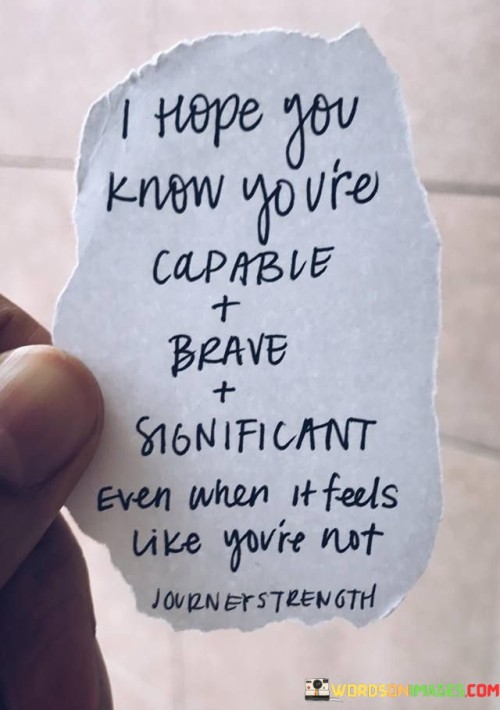 I Hope you
Know you're
CAPABLE
+
BRAVE
+
SIGNIFICANT
Even when it feels
Like you're not
JOURNEYSTRENGTH
WORDSONIMAGES.COM